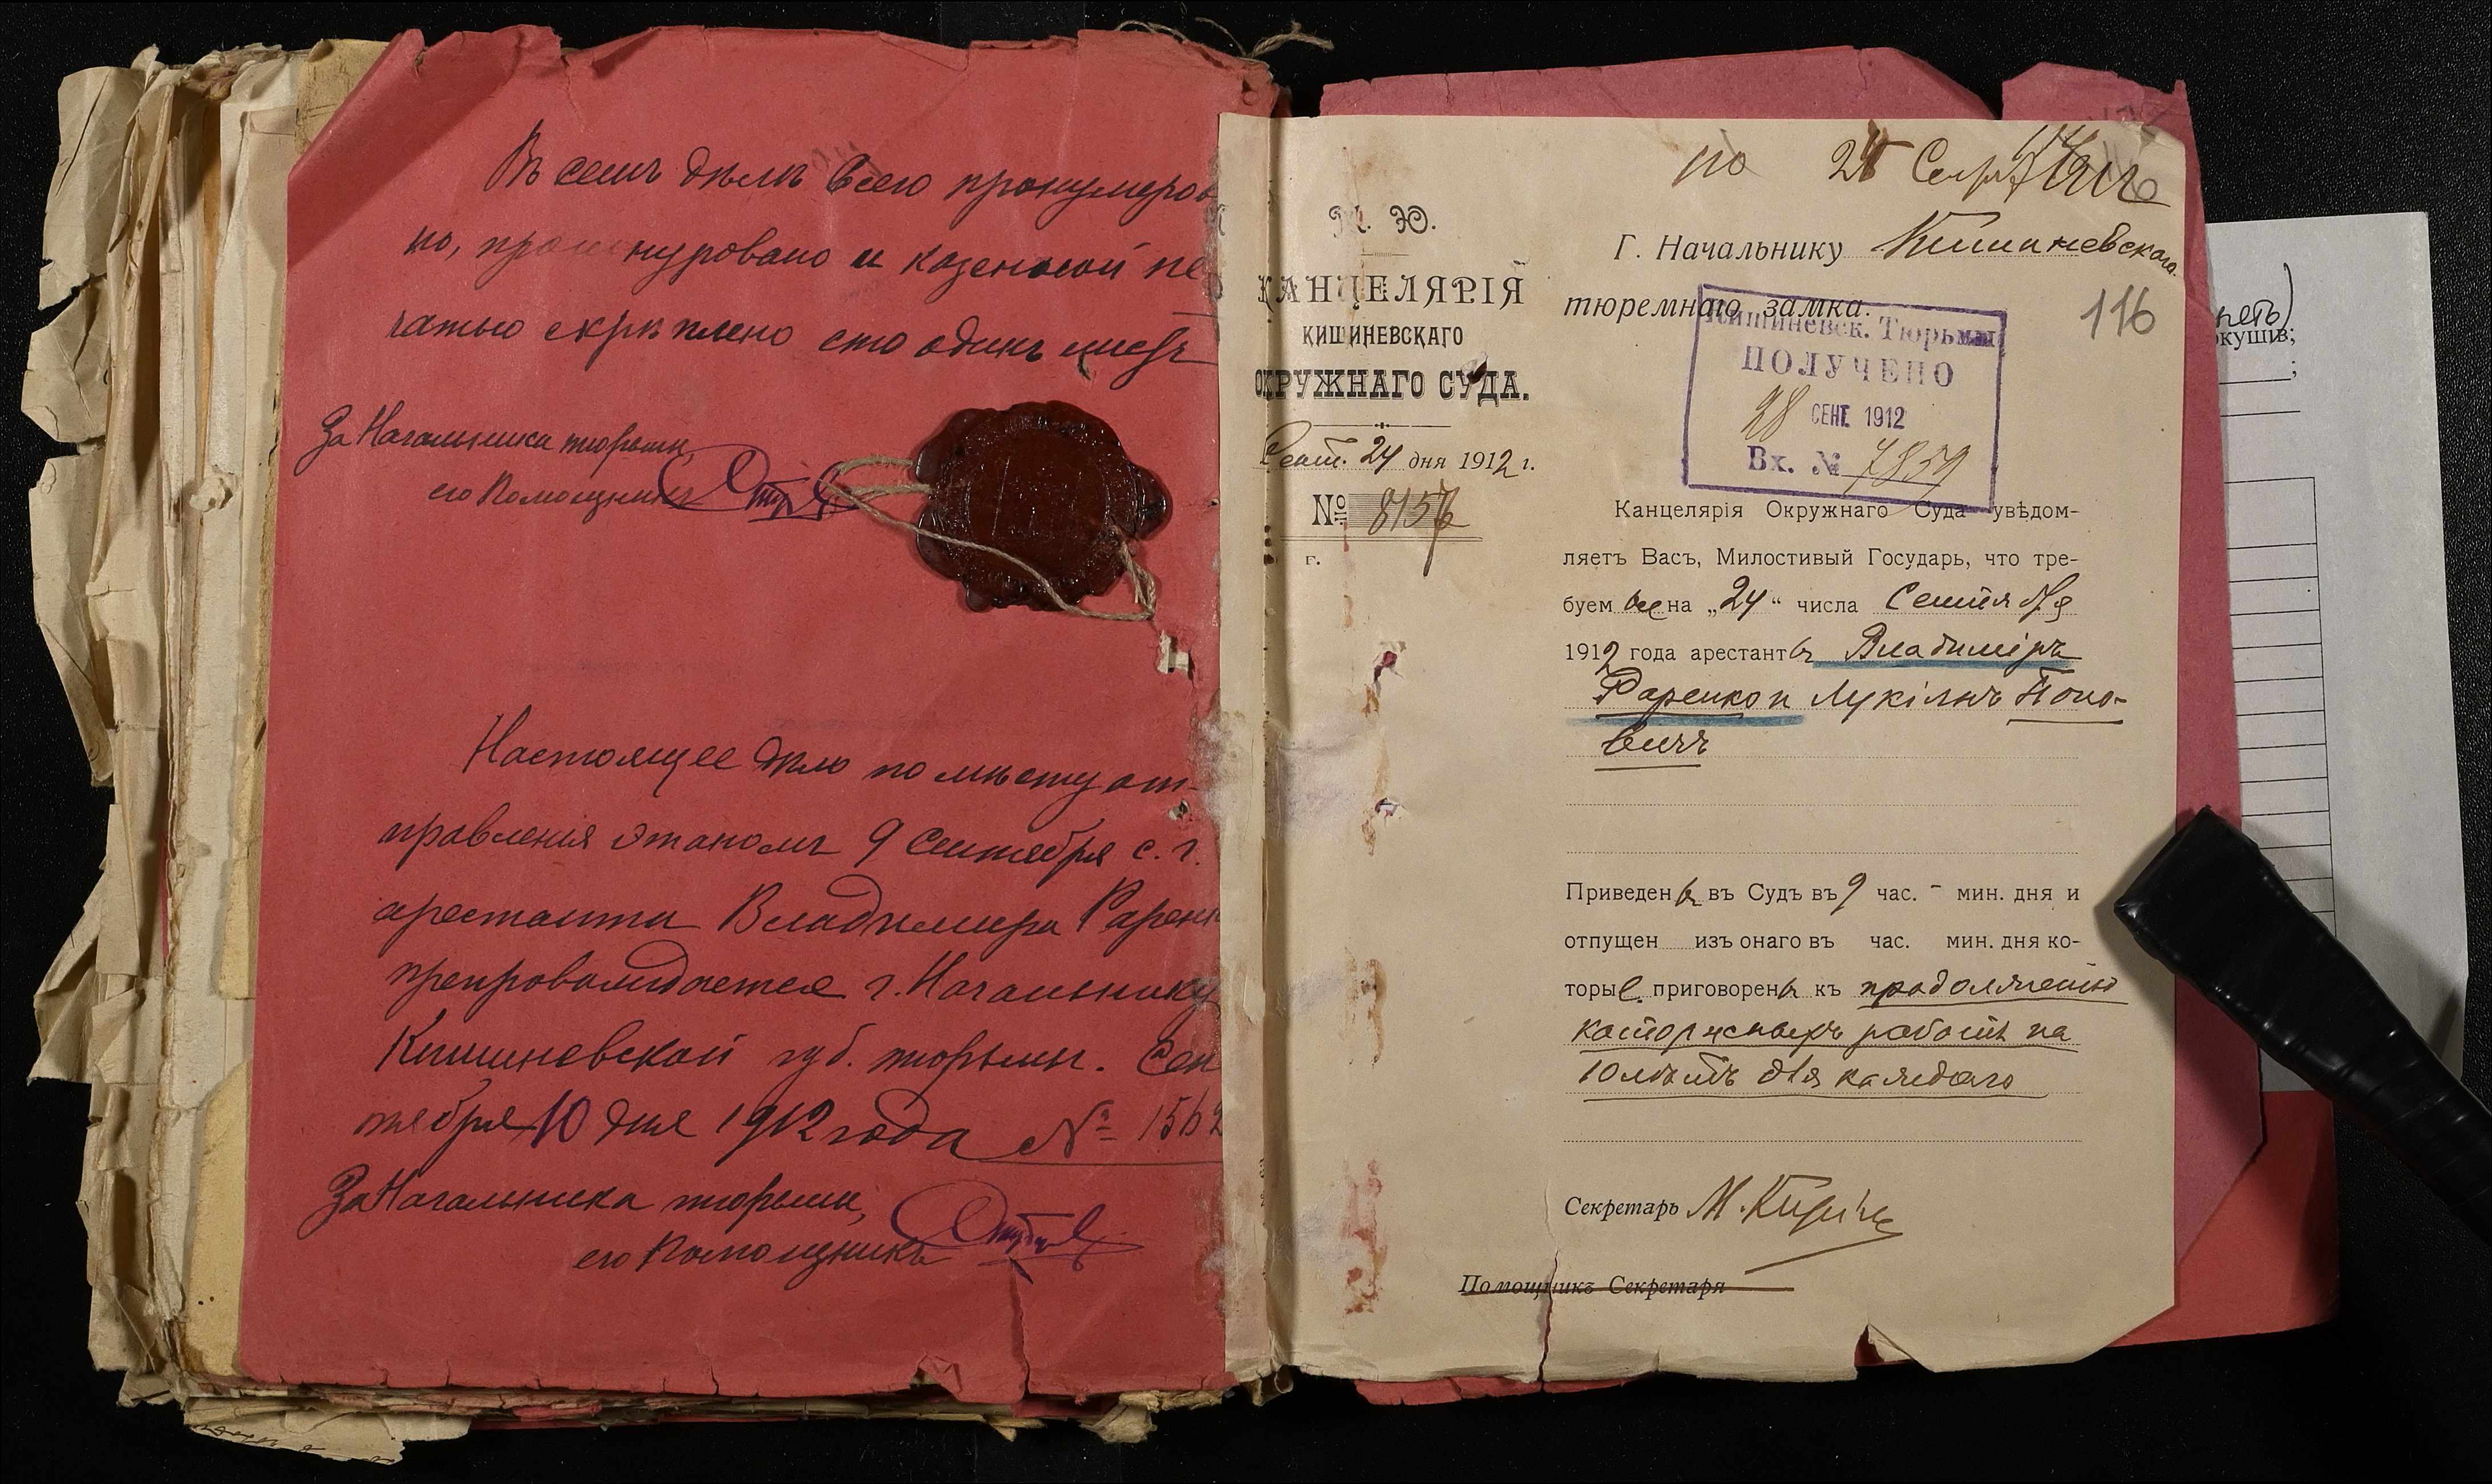 Въ семъ дѣлѣ всего пронумеров
но, прошнуровано и казенной пе
чатью скрѣплено сто одинъ листъ
За Начальника тюрьмы,
его Помощникъ
Настоящее дѣло по мѣсту от-
правления этапомъ 9 Сентября с. г.
арестанта Владимира Раренк
препровождается г. Начальнику
Кишиневской губ. тюрьмы. Сен
тября 10 дня 1912 года № 1562
За Начальника тюрьмы,
его Помощникъ
М. Ю.
КАНЦЕЛЯРІЯ
КИШИНЕВСКАГО
ОКРУЖНАГО СУДА.
Сент. 24 дня 1912 г.
№ 8157
г.
по 24 Сент 1912
Г. Начальнику Кишиневскаго
тюремнаго замка.
116
Кишиневск. Тюрьмы
ПОЛУЧЕНО
28 СЕНТ. 1912
Вх. № 7859
Канцелярія Окружнаго Суда увѣдом-
ляетъ Васъ, Милостивый Государь, что тре-
буем ые на „24“ числа Сентября
1912 года арестантъ Владиміръ
Раренко и Лукіянъ Попо-
вичъ
Приведенъ въ Судъ въ 9 час. - мин. дня и
отпущен изъ онаго въ час. мин. дня ко-
торые приговорены къ продолженію
каторжныхъ работъ на
10 лѣтъ для каждаго
Секретарь М.
Помощникъ Секретаря
кушив;
;